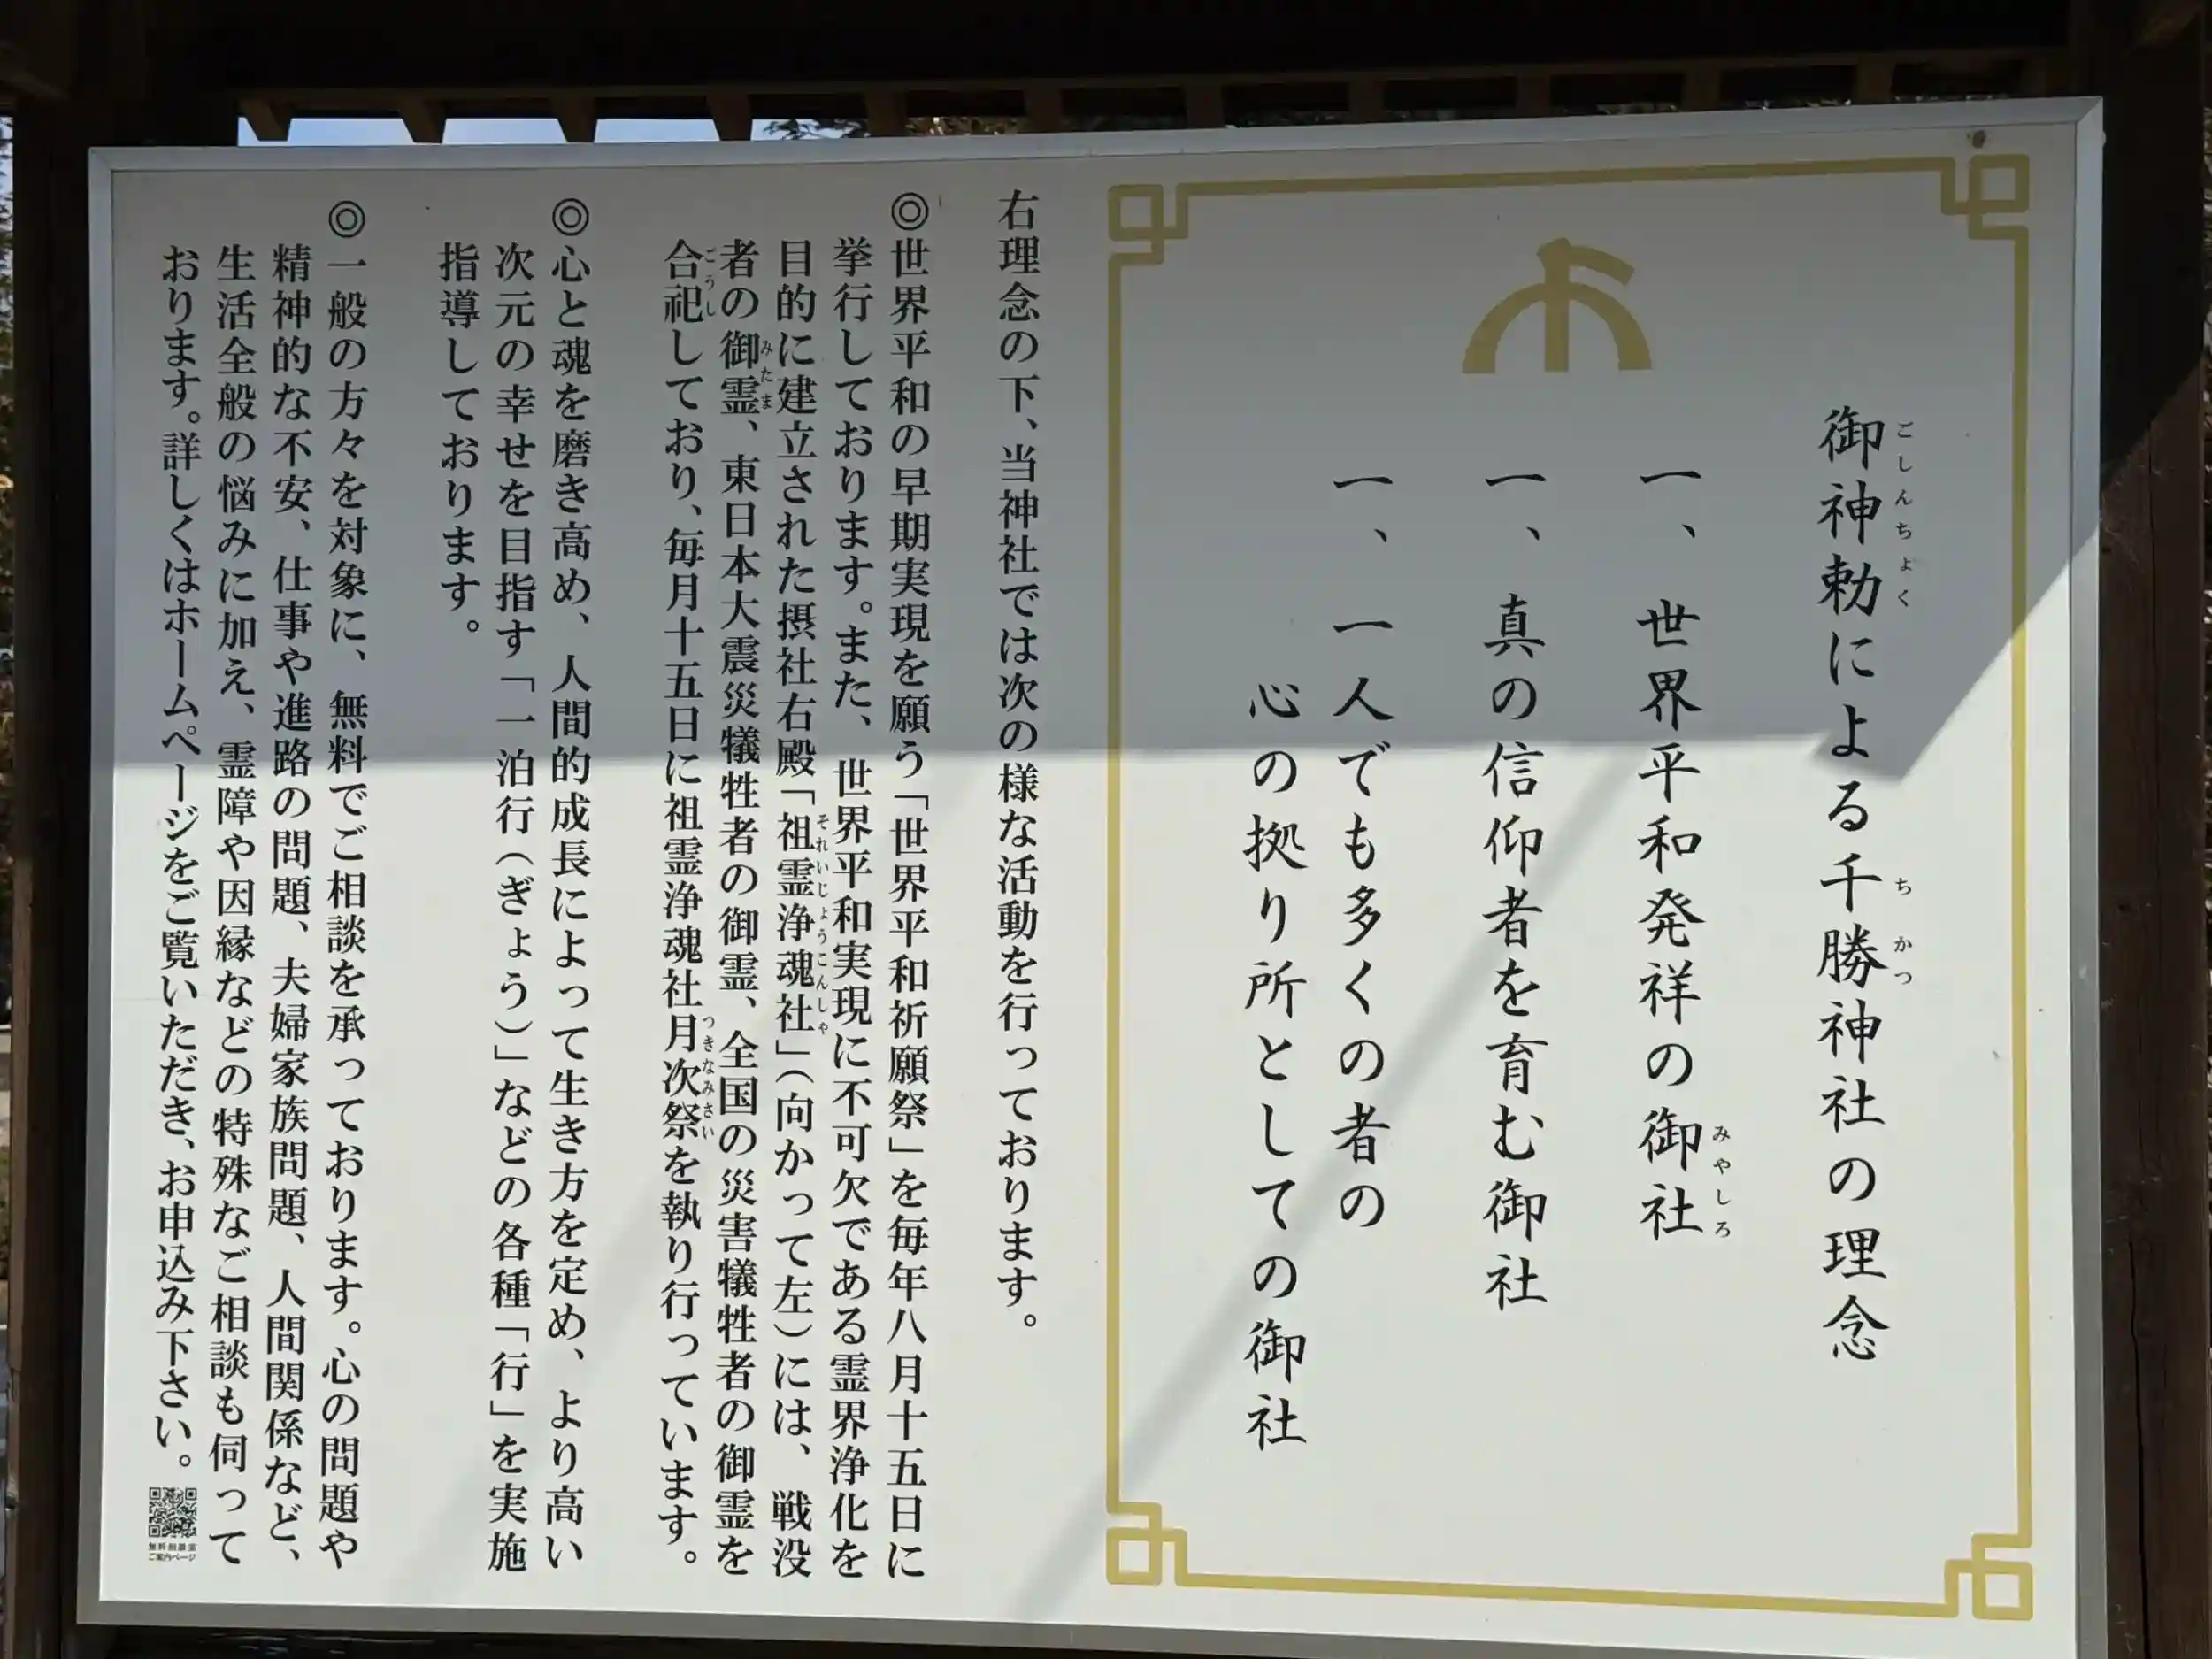 御神勅による千勝神社の理念
ごしんちょく
ちかつ
一、世界平和発祥の御社
みやしろ
一、真の信仰者を育む御社
一、一人でも多くの者の
心の拠り所としての御社
右理念の下、当神社では次の様な活動を行っております。
◎世界平和の早期実現を願う「世界平和祈願祭」を毎年八月十五日に
挙行しております。また、世界平和実現に不可欠である霊界浄化を
目的に建立された摂社右殿「祖霊浄魂社」(向かって左)には、戦没
それいじょうこんしゃ
者の御霊、東日本大震災犠牲者の御霊、全国の災害犠牲者の御霊を
みたま
合祀しており、毎月十五日に祖霊浄魂社月次祭を執り行っています。
ごうし
つきなみさい
◎心と魂を磨き高め、人間的成長によって生き方を定め、より高い
次元の幸せを目指す「一泊行(ぎょう)」などの各種「行」を実施
指導しております。
◎一般の方々を対象に、無料でご相談を承っております。心の問題や
精神的な不安、仕事や進路の問題、夫婦家族問題、人間関係など、
生活全般の悩みに加え、霊障や因縁などの特殊なご相談も伺って
おります。詳しくはホームページをご覧いただき、お申込み下さい。
ご案内ページ